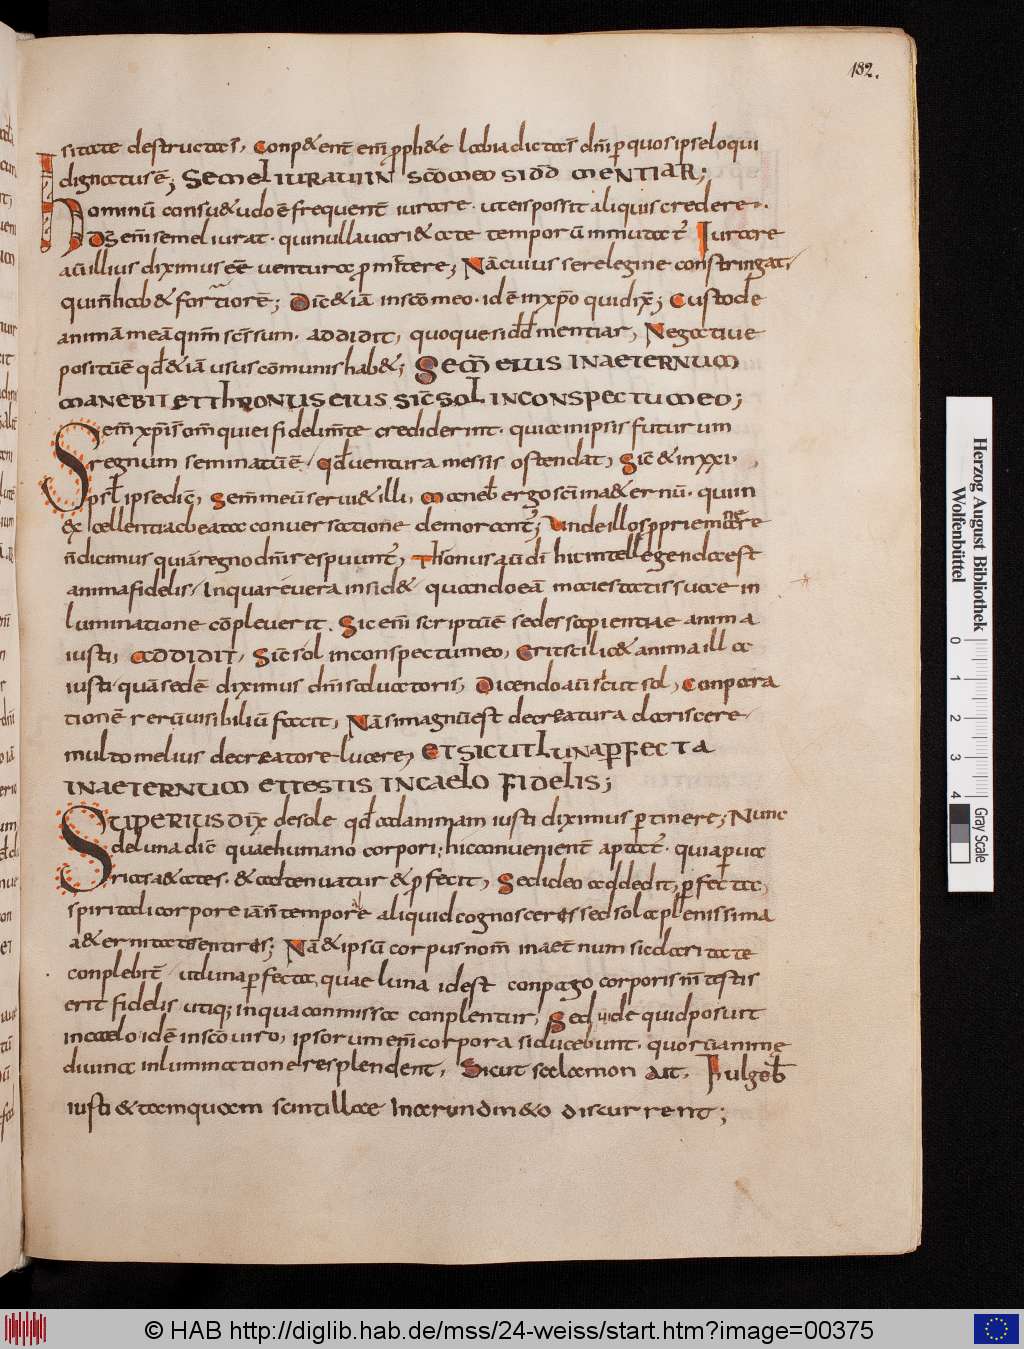 182.
sitate destructas, Conp&ent em prph&e labia dictas dni p quos ipse loqui
dignatus e; SEMEL IURAUI IN SCO MEO SI DD MENTIAR;
Hominu consu&udo e frequent iurare. ut eis possit aliquis credere.
Ds em semel iurat. qui nulla uari&ate temporu inmutat Iurare
au illius diximus ee uentura pmittere; Na cuius se relegine constringat,
qui n hab& fortiore; Dic& ia in sco meo. ide in xpo qui dix; Custode
anima mea qnm scs sum. ADDIDIT, quoque si dd mentiar, Negatiue
positu e qd & ia usus comunis hab&; SEM EIUS IN AETERNUM
MANEBIT ET THRONUS EIUS SIC SOL IN CONSPECTU MEO;
Sem xpi s om qui ei fidelimte crediderint. quia in ipsis futurum
regnum seminatu e, qd uentura messis ostendat, Sic & in xxi.
psl ipse dic, Sem meu serui& illi, Maneb ergo sci in a&ernu. qui in
excellentia beata conuersatione demorant; Unde illos pprie manere
n dicimus quia regno dni respuunt, Thonus au di hic intellegenda est
anima fidelis, In qua reuera insid& quando ea maiestatis suae in
luminatione copleuerit. Sic em scriptu e sedes sapientiae anima
iusti, ADDIDIT, Sic sol in conspectu meo, Erit scilic& anima illa
iusti qua sede diximus dni saluatoris, Dicendo au sicut sol, Conpara
tione reru uisibiliu facit, Na si magnu est de creatura clariscere
multo melius de creatore lucere, ET SICUT LUNA PFECTA
IN AETERNUM ET TESTIS IN CAELO FIDELIS;
SUPERIUS DIX de sole qd ad animam iusti diximus ptinere, Nunc
de luna dic quae humano corpori; hic conuenient aptat. quia p uα
rias a&ates. & adtenuatur & pfecit, Sed ideo addedit, pfecta,
spiritali corpore ia n tempore aliquid cognosceres sed sola plenissima
a&ernitate sentires; Na & ipsu corpus nom in aetnum sic claritate
conplebit ut luna pfecta, quae luna id est conpago corporis nri testis
erit fidelis utiq; in qua conmissa conplentur, Sed uide quid posuit
in caelo ide in sco uiro, ipsorum em corpora si ducebunt. quoru anime
diuina inluminatione resplendent, Sicut salamon ait. Fulgeb
iusti & tamquam scintillae in arundin&o discurrent;
Herzog August Bibliothek
Wolfenbüttel
0 1 2 3 4
Gray Scale
© HAB http://diglib.hab.de/mss/24-weiss/start.htm?image=00375